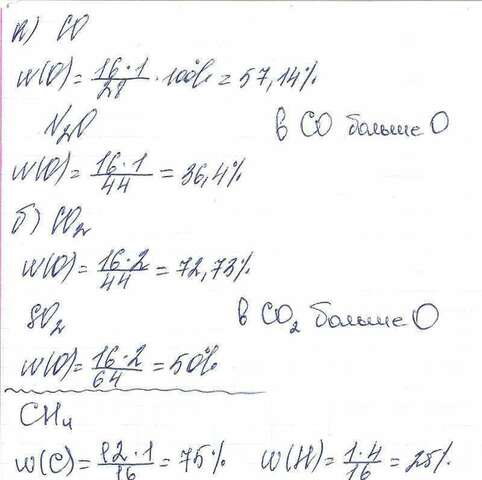 а) CO
w(O) = 16·1/28 · 100% = 57,14%
N₂O
в CO больше O
w(O) = 16·1/44 = 36,4%
б) CO₂
w(O) = 16·2/44 = 72,73%
SO₂
в CO₂ больше O
w(O) = 16·2/64 = 50%
CH₄
w(C) = 12·1/16 = 75% w(H) = 1·4/16 = 25%